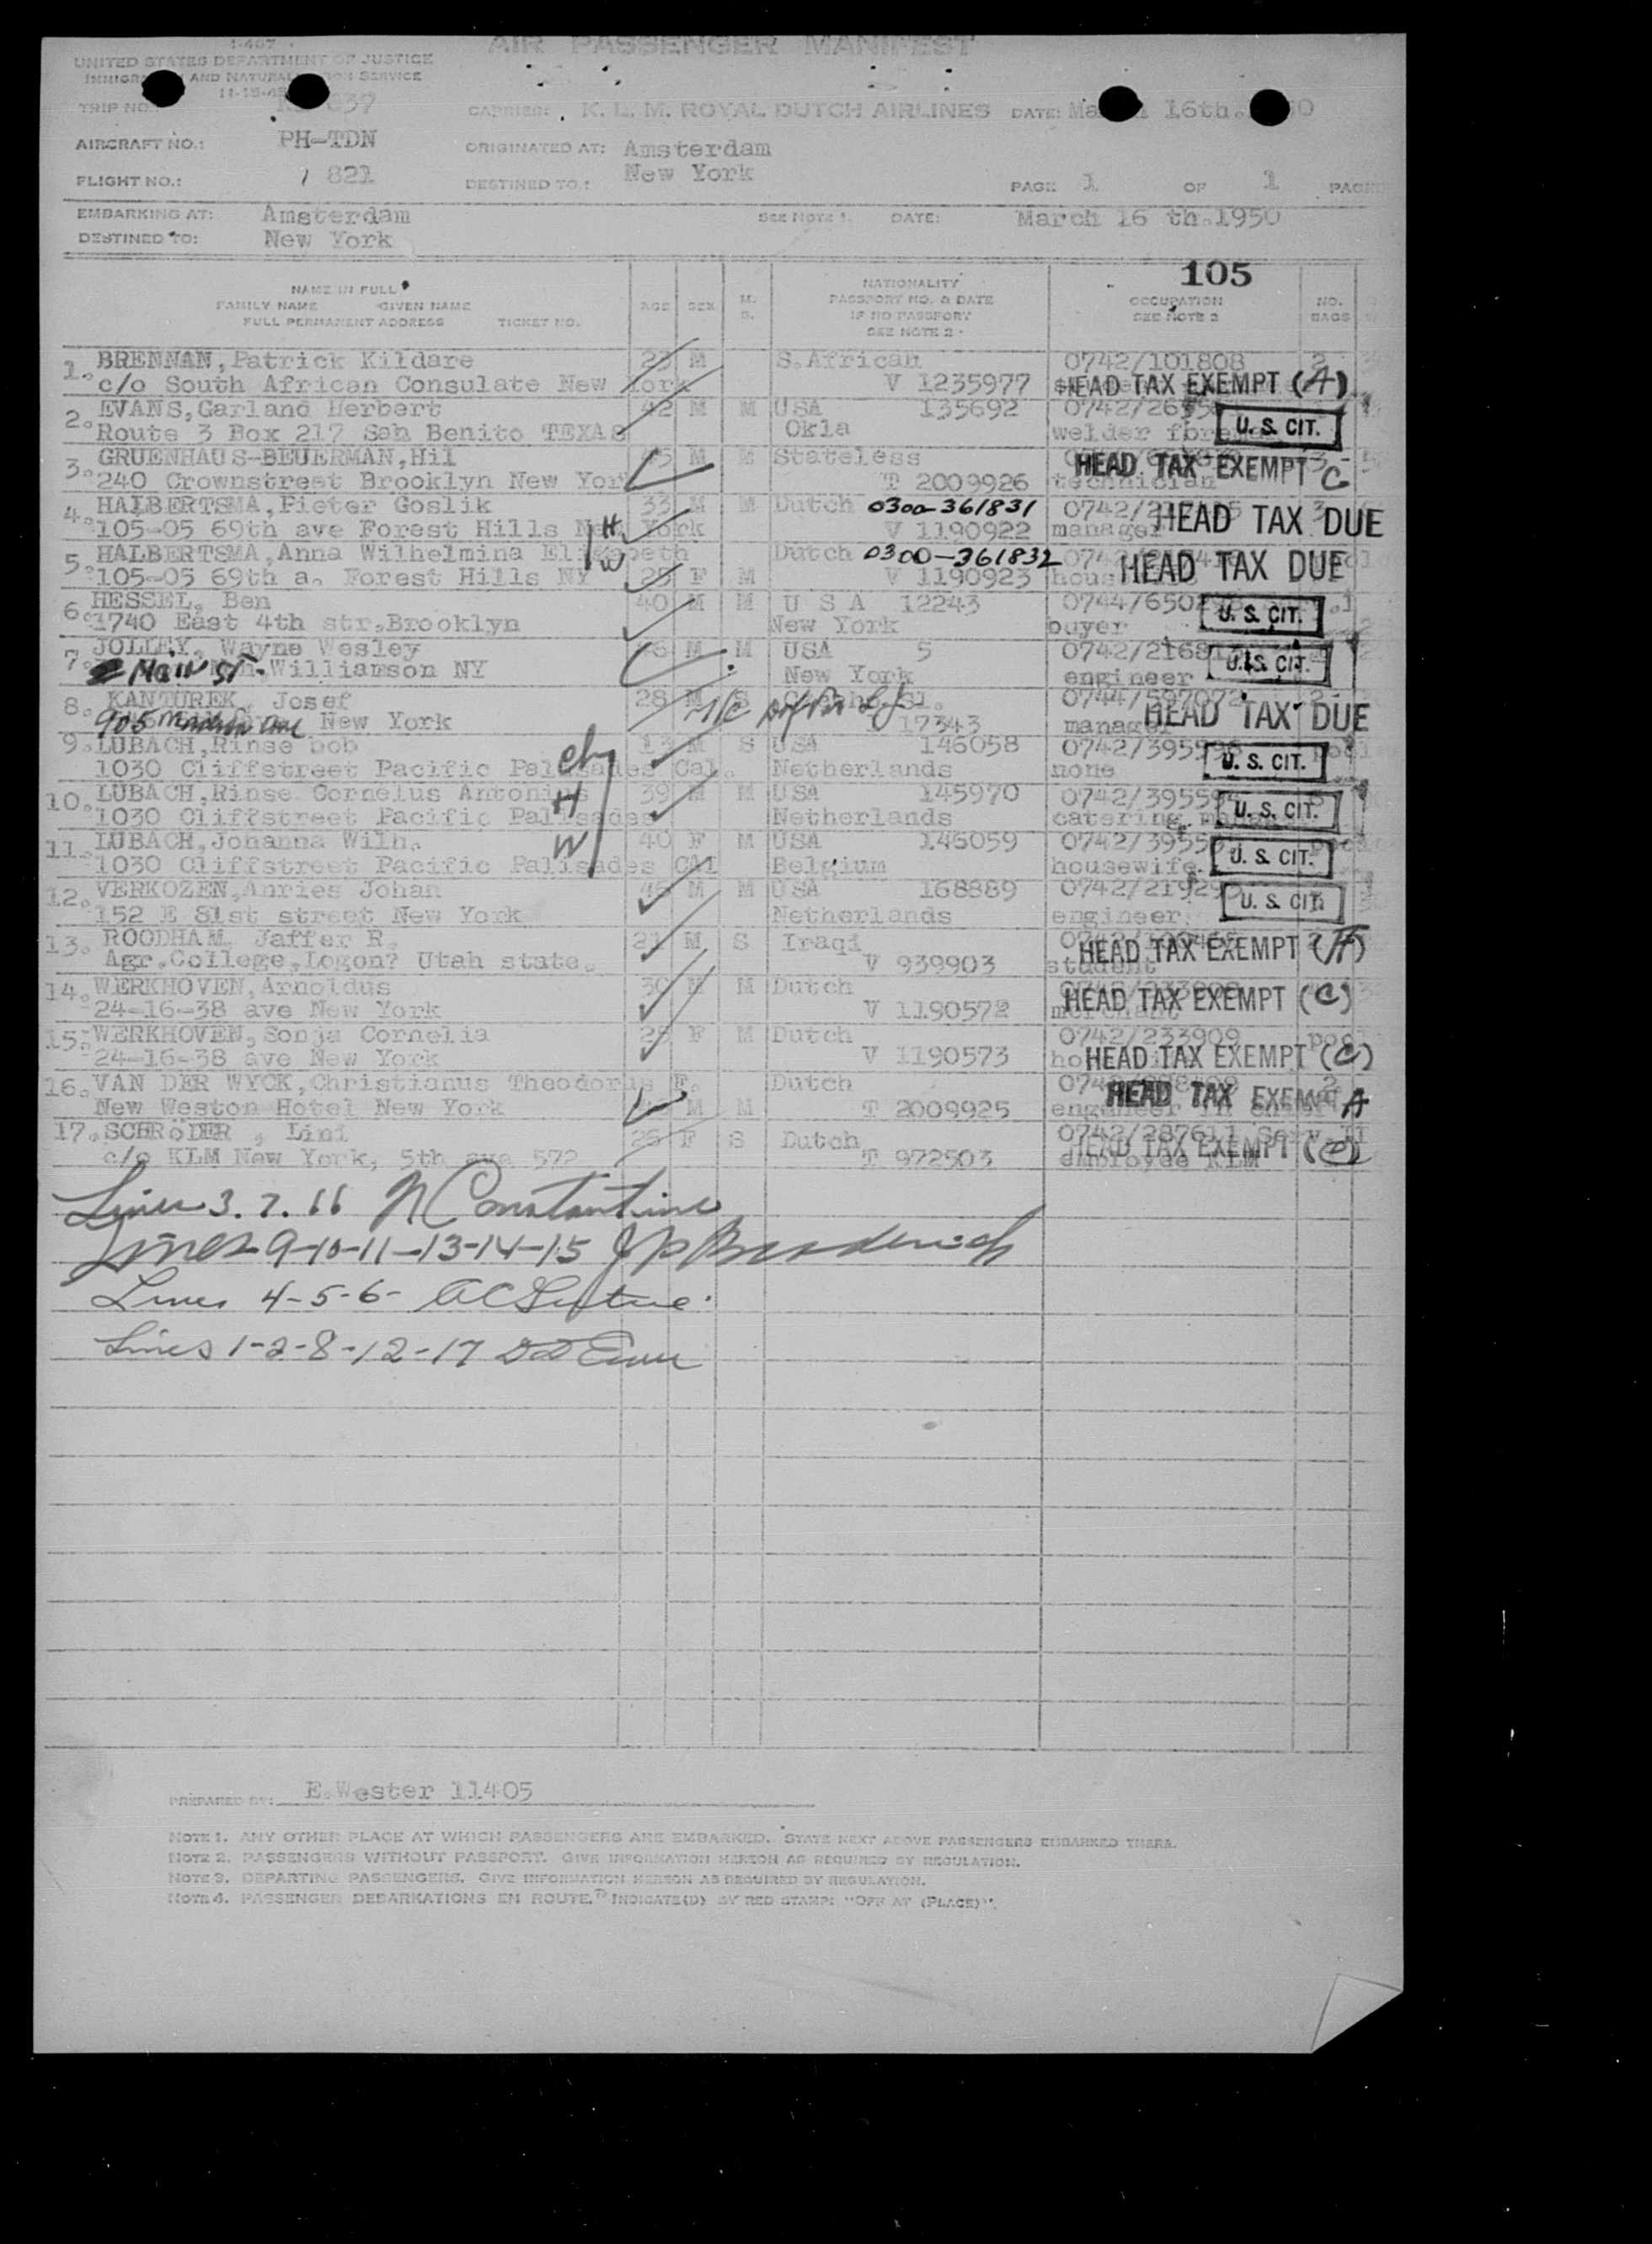 I-467
AIR PASSENGER MANIFEST
UNITED STATES DEPARTMENT OF JUSTICE
IMMIGRATION AND NATURALIZATION SERVICE
TRIP NO. 637 CARRIER: K. L. M. ROYAL DUTCH AIRLINES DATE: March 16th. 50
AIRCRAFT NO.: PH-TDN ORIGINATED AT: Amsterdam
FLIGHT NO.: 821 DESTINED TO: New York PAGE 1 OF 1 PAGE
EMBARKING AT: Amsterdam SEE NOTE 1. DATE: March 16 th.1950
DESTINED TO: New York
105
NAME IN FULL
FAMILY NAME GIVEN NAME
FULL PERMANENT ADDRESS TICKET NO.
AGE SEX M. S.
NATIONALITY
PASSPORT NO. & DATE
IF NO PASSPORT
SEE NOTE 2
OCCUPATION
SEE NOTE 2
NO.
BAGS
1. BRENNAN,Patrick Kildare 23 M S.African 0742/101808 2
c/o South African Consulate New York V 1235977 HEAD TAX EXEMPT (A)
2. EVANS,Garland Herbert 42 M M USA 135692
Route 3 Box 217 San Benito TEXAS Okla welder U. S. CIT.
3. GRUENHAUS-BEUERMAN,Hil M M Stateless
240 Crownstreet Brooklyn New York T 2009926 technician HEAD TAX EXEMPT C
4. HALBERTSMA,Pieter Goslik 33 M M Dutch 0300-361831
105-05 69th ave Forest Hills New York H V 1190922 manager HEAD TAX DUE
5. HALBERTSMA,Anna Wilhelmina Elisabeth Dutch 0300-361832
105-05 69th a. Forest Hills NY W 25 F M V 1190923 HEAD TAX DUE
6. HESSEL, Ben 40 M M U S A 12243
1740 East 4th str.Brooklyn New York buyer U. S. CIT.
7. JOLLEY, Wayne Wesley M M USA 5
Main St. Williamson NY New York engineer U.S. CIT.
8. KANTUREK, Josef 28 M S 0744/597072
905 Madison Ave New York 17343 manager HEAD TAX DUE
9. LUBACH,Rinse bob 13 M S USA 146058
1030 Cliffstreet Pacific Palisades Cal. Netherlands none U. S. CIT.
10. LUBACH,Rinse Cornelus Antonius H 39 M M USA 145970
1030 Cliffstreet Pacific Palisades Netherlands catering U. S. CIT.
11. LUBACH,Johanna Wilh. W 40 F M USA 146059
1030 Cliffstreet Pacific Palisades CAl Belgium housewife. U. S. CIT.
12. VERKOZEN,Anries Johan M M USA 168889
152 E 81st street New York Netherlands engineer U. S. CIT.
13. ROODHAM Jaffer R. 21 M S Iraqi
Agr.College,Logon? Utah state. V 939903 student HEAD TAX EXEMPT
14. WERKHOVEN,Arnoldus 30 M M Dutch
24-16-38 ave New York V 1190572 HEAD TAX EXEMPT (C)
15. WERKHOVEN,Sonja Cornelia F M Dutch 0742/233909
24-16-38 ave New York V 1190573 HEAD TAX EXEMPT (C)
16. VAN DER WYCK,Christianus Theodorus F. Dutch
New Weston Hotel New York M M T 2009925 engineer HEAD TAX EXEMPT A
17. SCHRöDER , Lini F S Dutch 0742/287611
c/o KLM New York, 5th ave 572 T 972503 employee KLM HEAD TAX EXEMPT
Lines 3. 7. 16 N Constantine
Lines 9-10-11-13-14-15
Lines 4-5-6-
Lines 1-2-8-12-17
PREPARED BY: E.Wester 11405
NOTE 1. ANY OTHER PLACE AT WHICH PASSENGERS ARE EMBARKED. STATE NEXT ABOVE PASSENGERS EMBARKED THERE.
NOTE 2. PASSENGERS WITHOUT PASSPORT. GIVE INFORMATION HEREON AS REQUIRED BY REGULATION.
NOTE 3. DEPARTING PASSENGERS. GIVE INFORMATION HEREON AS REQUIRED BY REGULATION.
NOTE 4. PASSENGER DEBARKATIONS EN ROUTE. INDICATE(D) BY RED STAMP: "OFF AT (PLACE)".